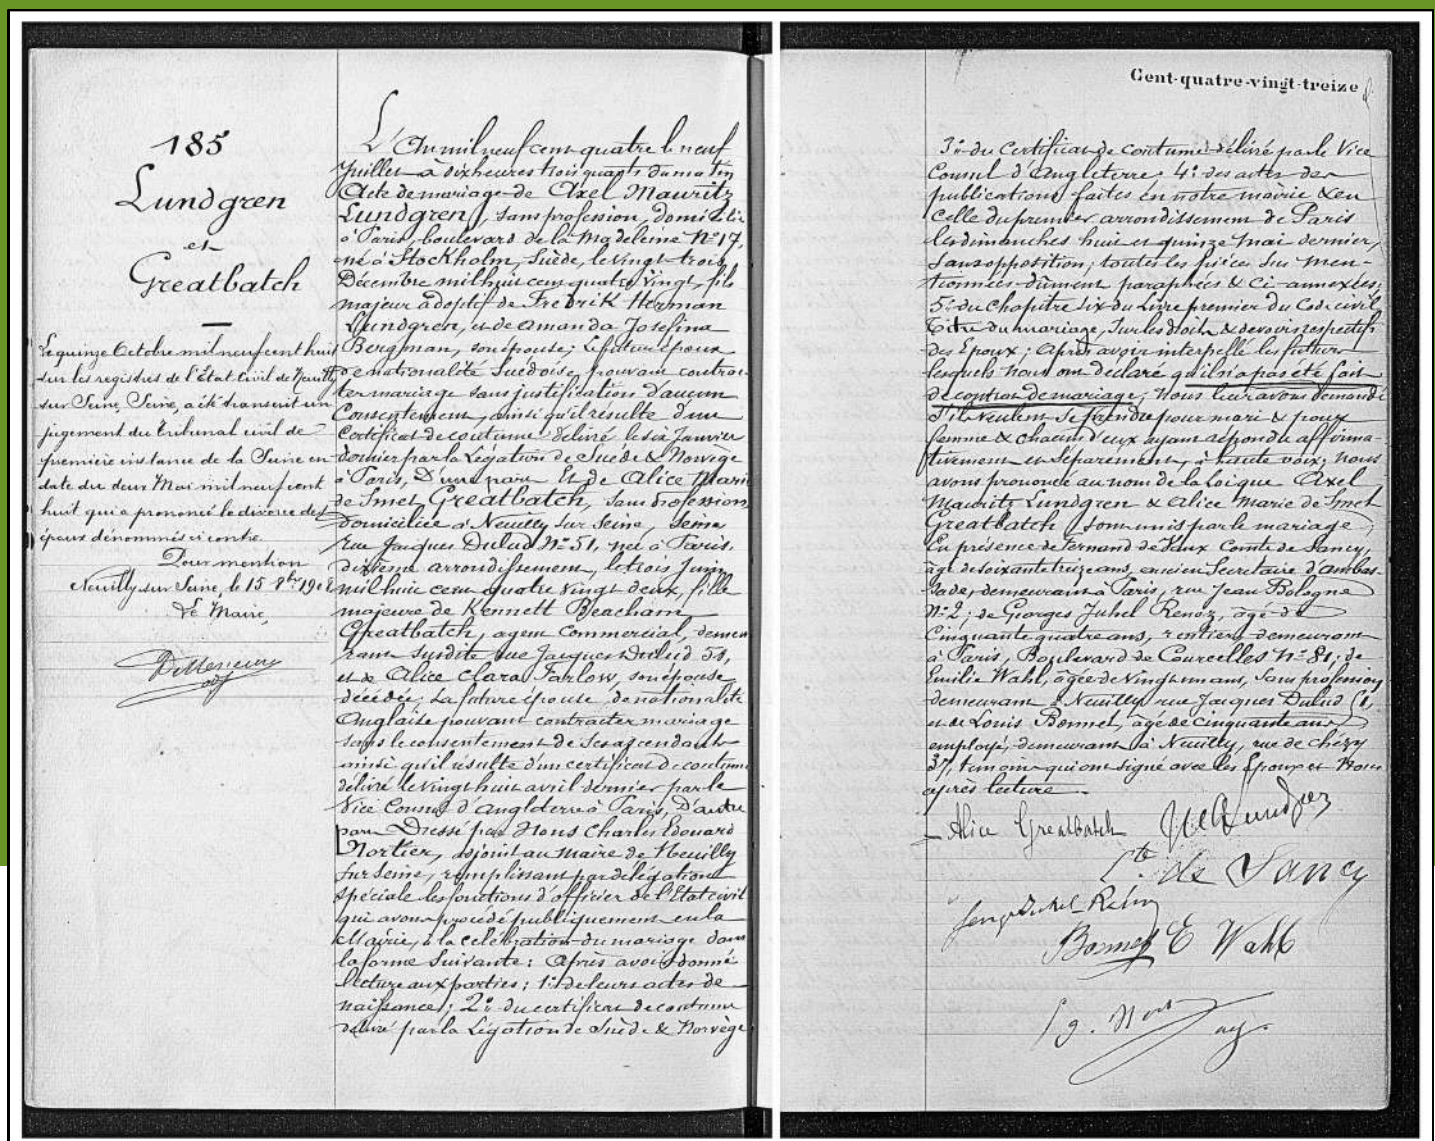 185
Lundgren
et
Greatbatch
Le quinze Octobre mil neuf cent huit
sur les registres de l'Etat Civil de Neuilly
sur Seine, Seine, a été transcrit un
jugement du tribunal civil de
première instance de la Seine en
date du deux Mai mil neuf cent
huit qui a prononcé le divorce des
époux dénommés ci contre.
Pour mention
Neuilly sur Seine, le 15 8bre 1908
Le Maire,
L'An mil neuf cent quatre le neuf
Juillet à dix heures trois quarts du matin
Acte de mariage de Axel Mauritz
Lundgren, sans profession, domicilié
à Paris, boulevard de la Madeleine N° 17,
né à Stockholm, Suède, le vingt-trois
Décembre mil huit cent quatre vingt, fils
majeur adoptif de Fredrik Herman
Lundgren, et de Amanda Josefina
Bergman, son épouse; le futur époux
de nationalité Suédoise pouvant contrac-
ter mariage sans justification d'aucun
Consentement, ainsi qu'il résulte d'un
Certificat de coutume délivré le six Janvier
dernier par la Légation de Suède & Norvège
à Paris, D'une part Et de Alice Marie
de Smet Greatbatch, sans profession,
domiciliée à Neuilly sur Seine, Seine
rue Jacques Dulud N° 51, née à Paris,
dixième arrondissement, le trois Juin
mil huit cent quatre vingt deux, fille
majeure de Kennett Beacham
Greatbatch, agent Commercial, demeu
rant susdite rue Jacques Dulud 51,
et de Alice Clara Farlow, son épouse
décédée; La future épouse, de nationalité
Anglaise pouvant contracter mariage
sans le consentement de ses ascendants
ainsi qu'il résulte d'un certificat de coutume
délivré le vingt huit avril dernier par le
Vice Consul d'Angleterre à Paris, D'autre
part Dressé par Nous Charles Edouard
Nortier, adjoint au Maire de Neuilly
sur Seine, remplissant par délégation
spéciale les fonctions d'officier de l'Etat civil
qui avons procédé publiquement en la
Mairie, à la célébration du mariage dans
la forme suivante: Après avoir donné
lecture aux parties: 1° de leurs actes de
naissance; 2° du certificat de coutume
délivré par la Légation de Suède & Norvège
Cent-quatre-vingt-treize
3° du Certificat de coutume délivré par le Vice
Consul d'Angleterre; 4° des actes des
publications faites en notre mairie & en
celle du premier arrondissement de Paris
les dimanches huit et quinze Mai dernier,
sans opposition; toutes les pièces sus men-
tionnées dûment paraphées & ci-annexées;
5° du Chapitre six du Livre premier du Code civil
Titre du mariage, sur les droits & devoirs respectifs
des Epoux; Après avoir interpellé les futurs
lesquels nous ont déclaré qu'il n'a pas été fait
de contrat de mariage, Nous leur avons demandé
s'ils veulent se prendre pour mari & pour
femme & chacun d'eux ayant répondu affirma-
tivement et séparément, à haute voix, nous
avons prononcé au nom de la loi que Axel
Mauritz Lundgren & Alice Marie de Smet
Greatbatch sont unis par le mariage
En présence de Fernand de Vaux Comte de Sancy,
âgé de soixante treize ans, ancien Secrétaire d'ambas-
sade, demeurant à Paris, rue Jean Bologne
N° 2; de Georges Juhel Renoz, âgé de
Cinquante quatre ans, rentier, demeurant
à Paris, Boulevard de Courcelles N° 81; de
Emilie Wahl, âgée de vingt un ans, sans profession
demeurant à Neuilly rue Jacques Dulud 51,
et de Louis Bonnet, âgé de cinquante ans
employé, demeurant à Neuilly, rue de Chézy
37, témoins qui ont signé avec les Epoux et Nous
après lecture.
Alice Greatbatch
Cte de Sancy
Bonnet E Wahl